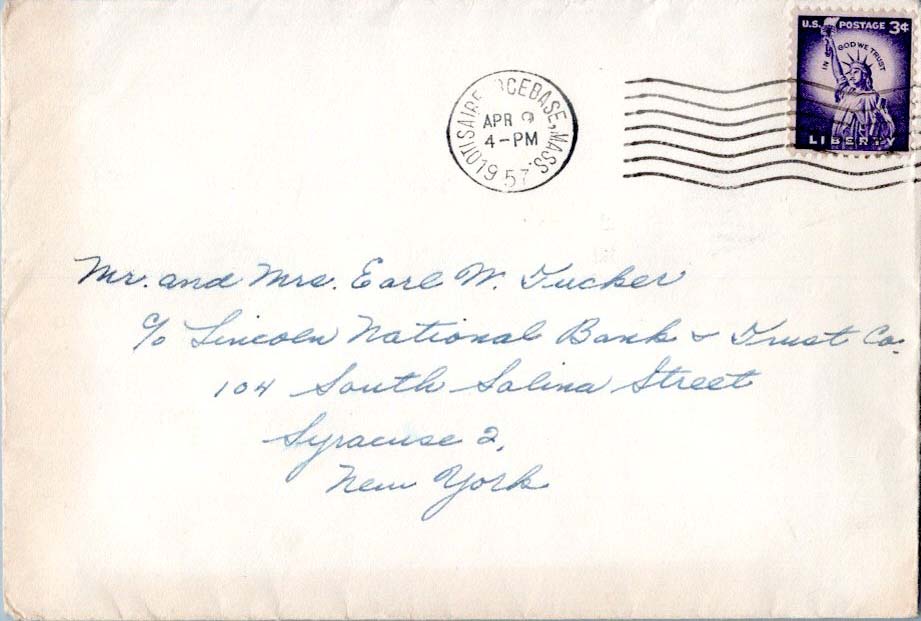 U.S. POSTAGE 3¢
IN GOD WE TRUST
LIBERTY
OTIS AIR FORCE BASE, MASS.
APR 9
4-PM
1957
Mr. and Mrs. Earl W. Tucker
c/o Lincoln National Bank & Trust Co.
104 South Salina Street
Syracuse 2,
New York